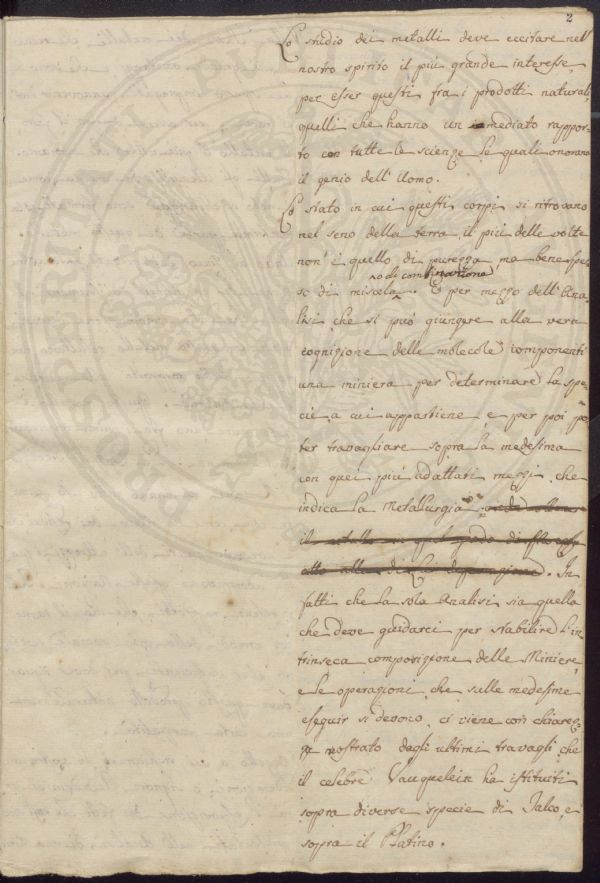 2
Lo studio dei metalli deve eccitare nell'
nostro spirito il più grande interesse,
per esser questi fra i prodotti naturali,
quelli che hanno un imediato rappor-
to con tutte le scienze le quali onorano
il genio dell'Uomo.
Lo stato in cui questi corpi si ritrovano
nel seno della terra, il più delle volte
non è quello di purezza ma bene spes-
so di combinazione
so di miscela. E per mezzo dell'Ana-
lisi che si può giungere alla vera
cognizione delle molecole componenti
una miniera per determinare la spe-
cie a cui appartiene e per poi po-
ter travagliare sopra la medesima
con quei più adattati mezzi che
indica la Metallurgia
il metallo in quel grado di
atto alla di lui depurazione. In
fatti che la sola Analisi sia quella
che deve guidarci per stabilire l'in
trinseca composizione delle Miniere,
e le operazioni che sulle medesime
eseguir si devono, ci viene con chiarez-
za mostrato dagli ultimi travagli che
il celebre Vauquelein ha istituiti
sopra diverse specie di Talco, e
sopra il Platino.